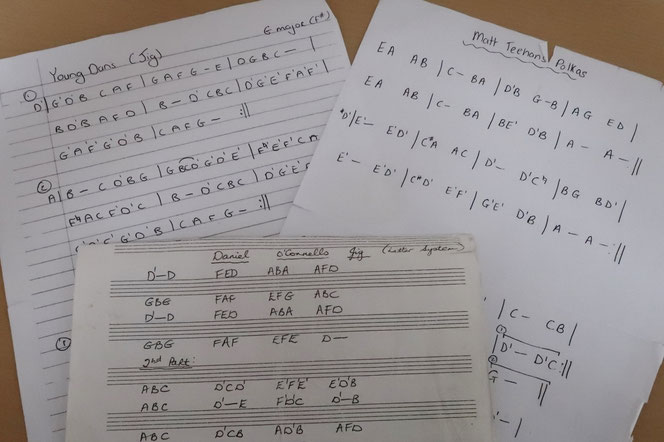 Young Dans (Jig)
G major (F#)
①
D'|G'D'B CAF|GAFG-E|DGBC-|
BD'B AFD|B-D'CBC|D'G'E'F'A'F'|
G'A'F'G'D'B|CAFG-:||
②
A|B-CD'BG|GBCD'G'D'E'|
B-D'CBC|D'G'E'
CAFG-:||
Matt Teehan's Polkas
EA AB|C- BA|D'B G-B|AG ED|
EA AB|C- BA|BE' D'B|A- A-:||
#D'|E'- E'D'|C#A AC|D'- D'C♮|BG BD'|
E'- E'D'|C#D' E'F'|G'E' D'B|A- A-:||
|C- CB|
|D'- D'C:||
G- ||
Daniel O'Connells Jig (Letter System)
D'-D FED ABA AFD
GBG FAF EFG ABC
D'-D FED ABA AFD
GBG FAF EFE D-
2nd Part:
ABC D'CD' E'F'E' E'D'B
ABC D'-E F'D'C D'-B
ABC D'CB AD'B AFD